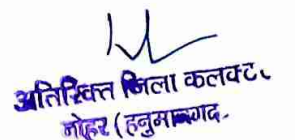 अतिरिक्त जिला कलक्टर
नोहर (हनुमानगढ़